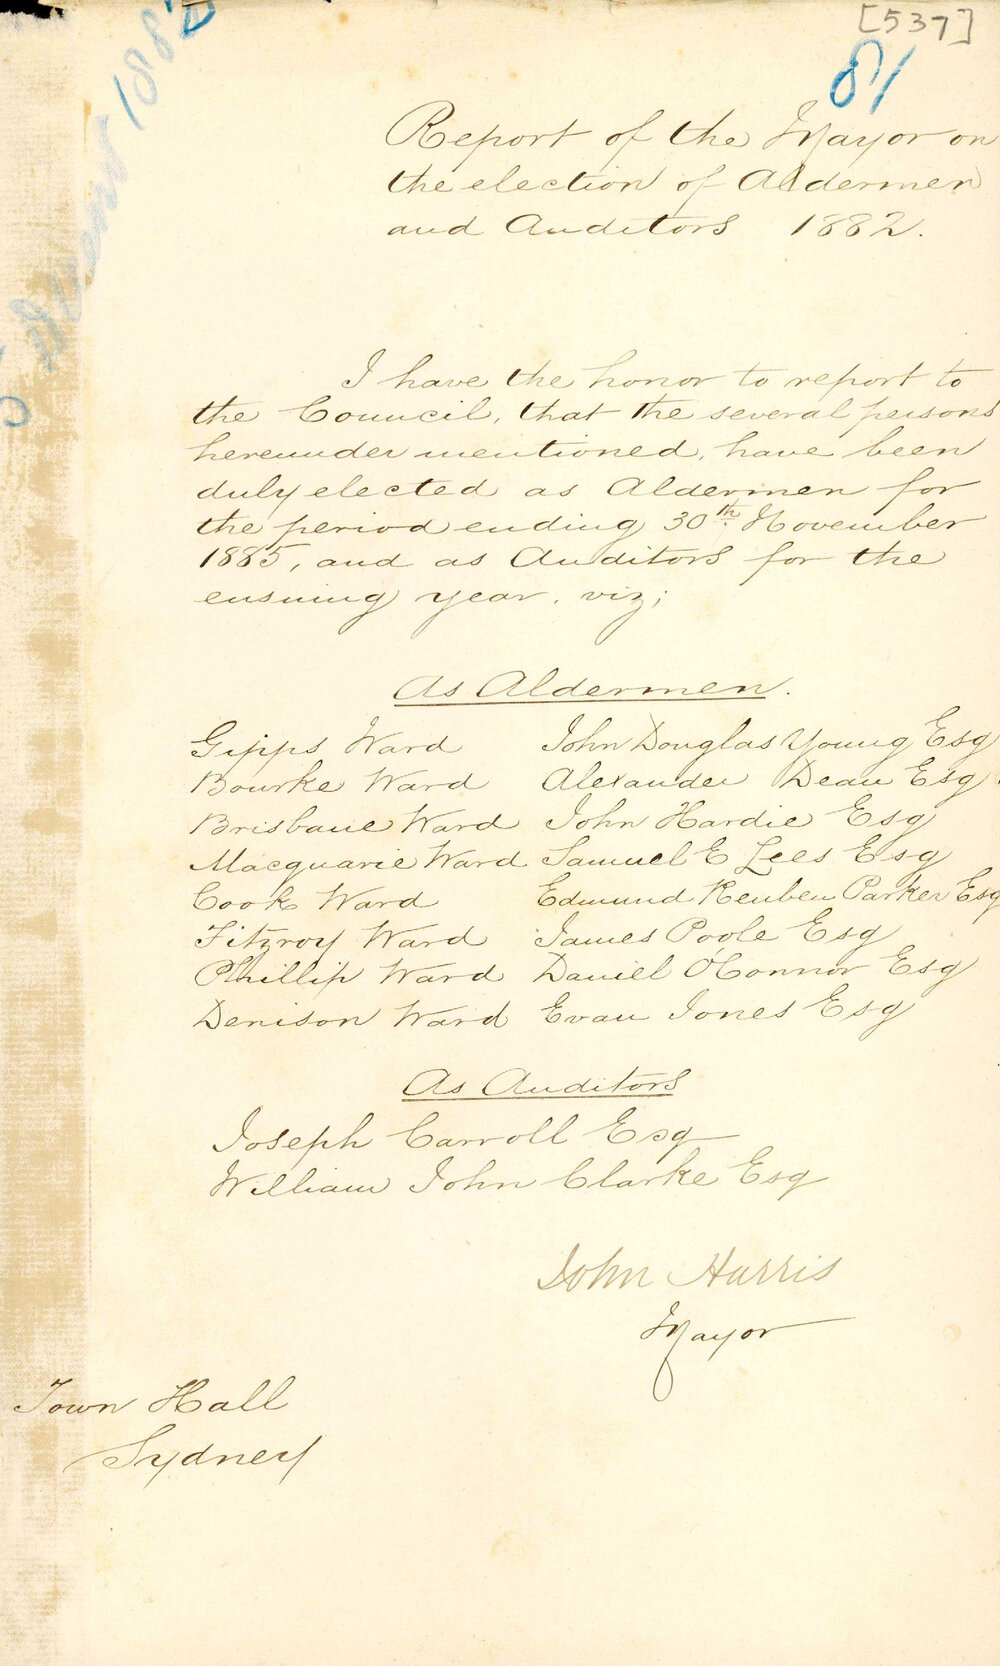 [537]
81
1882
Report of the Mayor on
the election of Aldermen
and Auditors 1882.
I have the honor to report to
the Council, that the several persons
hereunder mentioned, have been
duly elected as Aldermen for
the period ending 30th November
1885, and as Auditors for the
ensuing year. viz;
As Aldermen.
Gipps Ward John Douglas Young Esq
Bourke Ward Alexander Dean Esq.
Brisbane Ward John Hardie Esq
Macquarie Ward Samuel E Lees Esq
Cook Ward Edmund Reuben Parker Esq
Fitzroy Ward James Poole Esq
Phillip Ward Daniel O'Connor Esq
Denison Ward Evan Jones Esq
As Auditors
Joseph Carroll Esq
William John Clarke Esq
John Harris
Mayor
Town Hall
Sydney